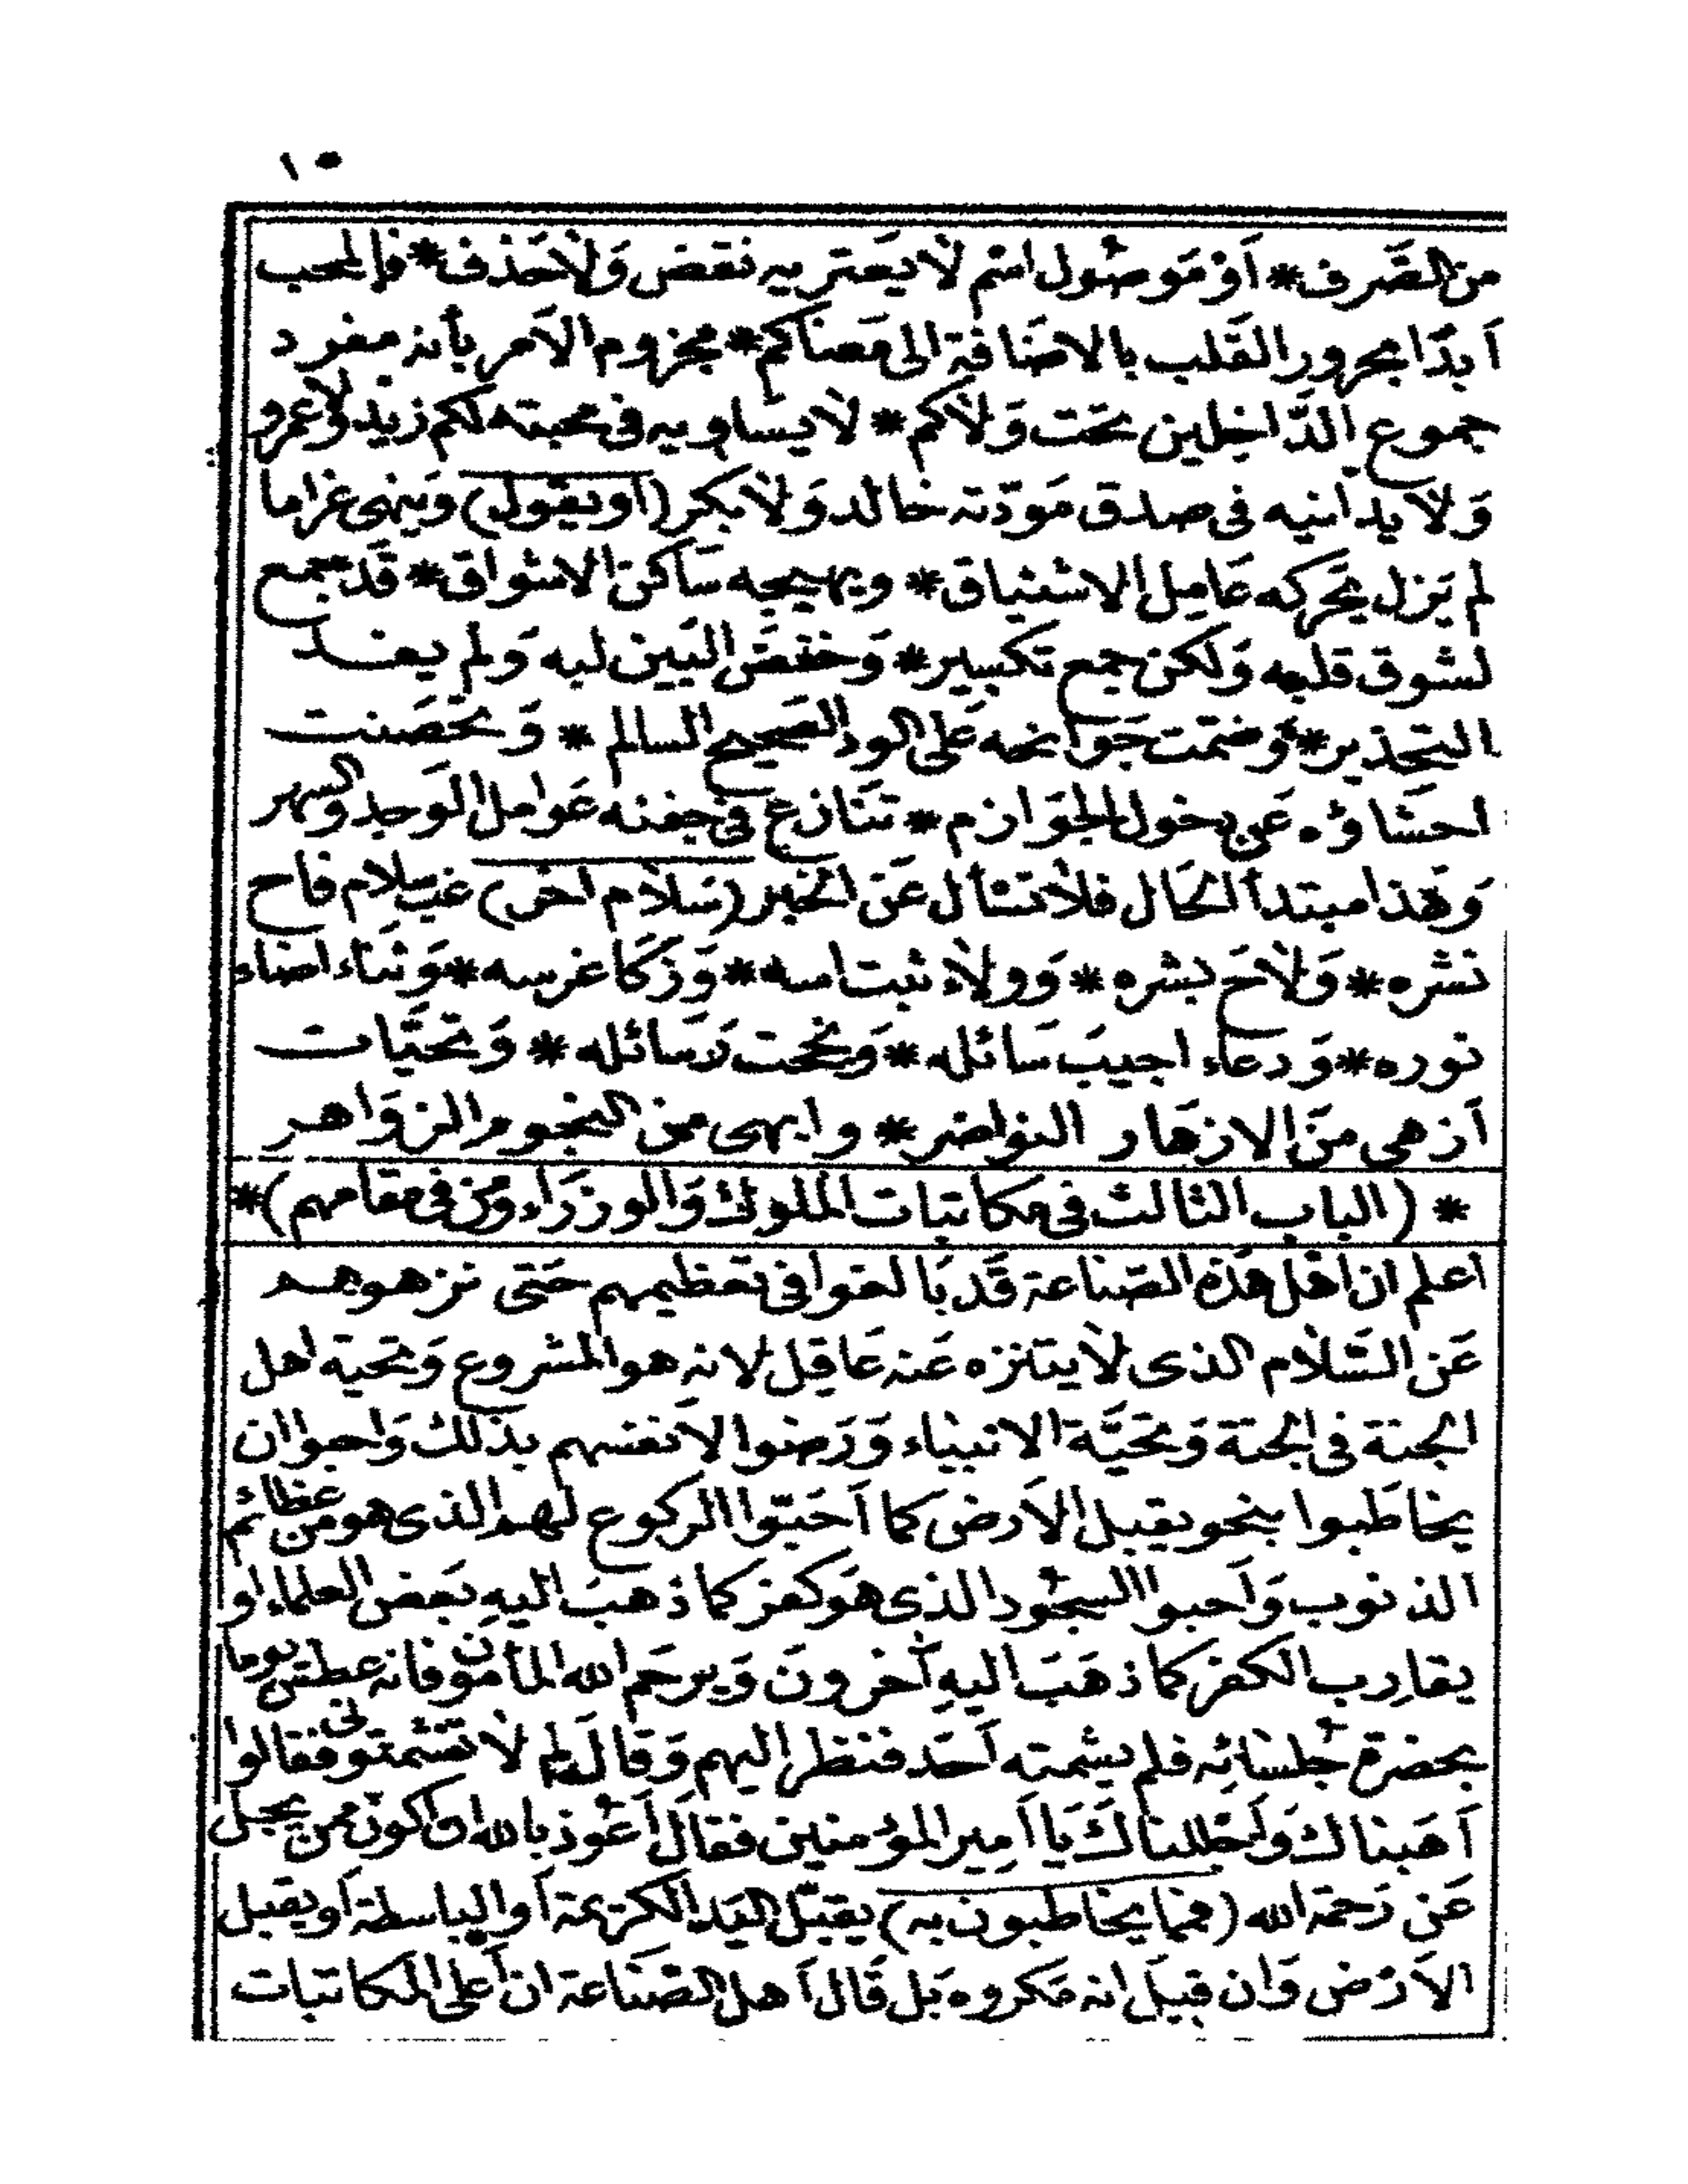 ١٥
من الصَّرف * أَوْ مَوصُول اسْم لَا يَعتريه نقض وَلَا حَذف * فالمحب
أبدًا مجرور القَلب بالاضَافة الى مَعناكم * مجزوم الأمر بأنه مفرد
جموع الدَّاخِلين تحت وَلَاكم * لَا يسَاويه فى محبته لكم زيد وَلا عمرو
وَلَا يدانيه فى صدق مَودّته خالد وَلَا بكر (أو يقول) وَينهى غراما
لم يَزل يحركه عَامِل الاشتياق * ويهيجه سَاكن الاشواق * قَد جمع
لشوق قلبه وَلكن جمع تكسير * وَخفض البَين لبه وَلم يفد
التحذير * وَضمّت جَوانحه عَلى الود الصَحيح السالم * وَتحصَنت
احشاؤه عَن دخول الجَوازم * تنَازع فى جفنه عَوامل الوَجد والسهر
وَهَذا مبتدأ الحَال فلَا تسْأل عَن الخبر (سَلام اخر) غب سلام فاح
نشره * وَلَاحَ بشره * وَوِلاء ثبت اسه * وَزكَا غرسه * وَثناء اضاء
نوره * وَدعاء اجيبَ سَائله * وَنجحت رَسَائله * وَتحيَّات
أزهى منَ الازهَار النواضر * وابهى من النجوم الزوَاهر
* (الباب الثالث فى مكاتبات الملوك وَالوزرَاء وَمن فى مقامهم) *
اعلم ان اهْل هَذه الصّناعة قَد بَالغوا فى تعظيمهم حَتى نزهوهم
عَن السَّلَام الذى لَا يتنزه عَنه عَاقِل لانه هو المشروع وَتحية اهل
الجنة فى الجنة وَتحيَّة الانبياء وَرَضوا لأنفسهم بذلك وَاحبوا ان
يخاطَبوا بنحو يقبل الأَرض كما أَحَبّوا الركوع لهم الذى هو من عظائم
الذنوب وَأحبوا السجُود الذى هَو كفر كما ذهبَ اليهِ بَعض العلماء او
يقارِب الكفر كما ذهَبَ اليهِ آخرونَ وَيرحَم الله المأمون فانه عطس يوما
بحضرة جُلسَائِه فلم يشمته أَحَد فنظر اليهم وَقالَ لم لَا تشمتونى فقالوا
أَهَبناك وَأجللناكَ يَا أَمِير المؤمنين فقالَ أعُوذ بالله ان اكون ممن يجل
عَن رَحمة الله (فمما يخاطبون به) يقبّل اليَد الكريمة أَو الباسطة أَو يقبل
الأَرْض وَان قيلَ انه مَكروه بَل قَال أَهل الصّنَاعة ان أَعلى المكاتبات